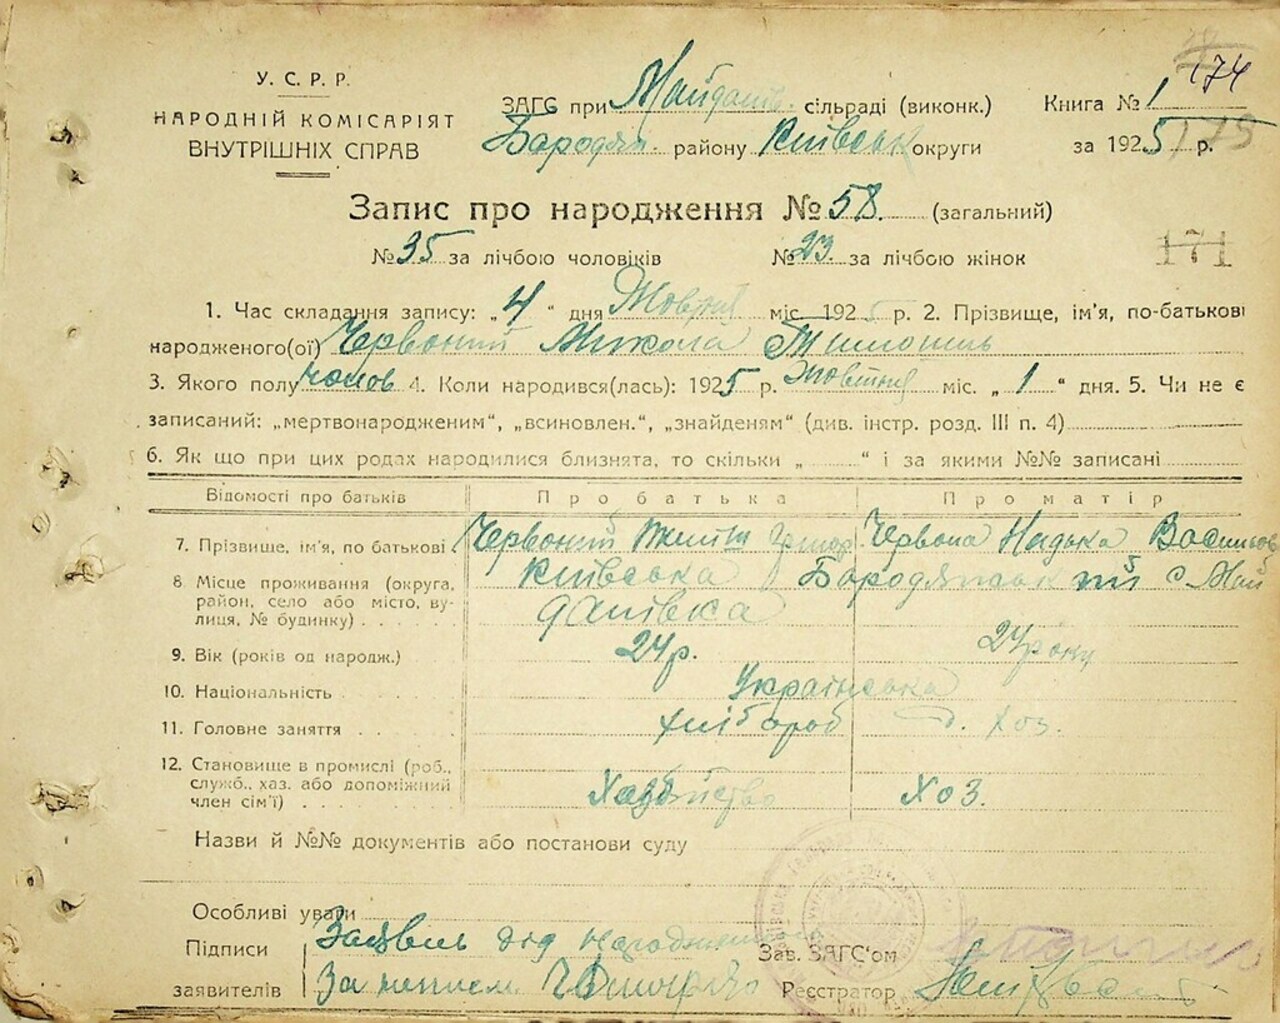 У. С. Р. Р.
НАРОДНІЙ КОМІСАРІЯТ
ВНУТРІШНІХ СПРАВ
ЗАГС при Майданів. сільраді (виконк.)
Бородян. району Київськ округи
Книга № 1
за 1925 р.
174
175
Запис про народження № 58. (загальний)
№ 35 за лічбою чоловіків № 23. за лічбою жінок
171
1. Час складання запису: „ 4 “ дня Жовтня міс. 1925 р. 2. Прізвище, ім'я, по-батькові
народженого(ої) Червоний Микола
3. Якого полу чолов 4. Коли народився(лась): 1925 р. Жовтня міс. „ 1 “ дня. 5. Чи не є
записаний: „мертвонародженим“, „всиновлен.“, „знайденям“ (див. інстр. розд. III п. 4)
6. Як що при цих родах народилися близнята, то скільки „ “ і за якими №№ записані
Відомості про батьків Про батька Про матір
7. Прізвище, ім'я, по батькові Червоний Григор Червона Надька Васильов
8 Місце проживання (округа, район, село або місто, вулиця, № будинку) Київська Бородянський с Май
данівка
9. Вік (років од народж.) 24 р. 24 року
10. Національність Українська
11. Головне заняття хлібороб д. хоз.
12. Становище в промислі (роб., служб., хаз. або допоміжний член сім'ї) Хоз.
Назви й №№ документів або постанови суду
Особливі уваги
Підписи Зав. ЗАГС'ом
заявителів За Реєстратор